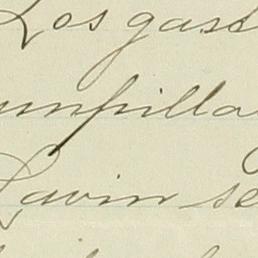 Los gast
unpilla
Lavin se